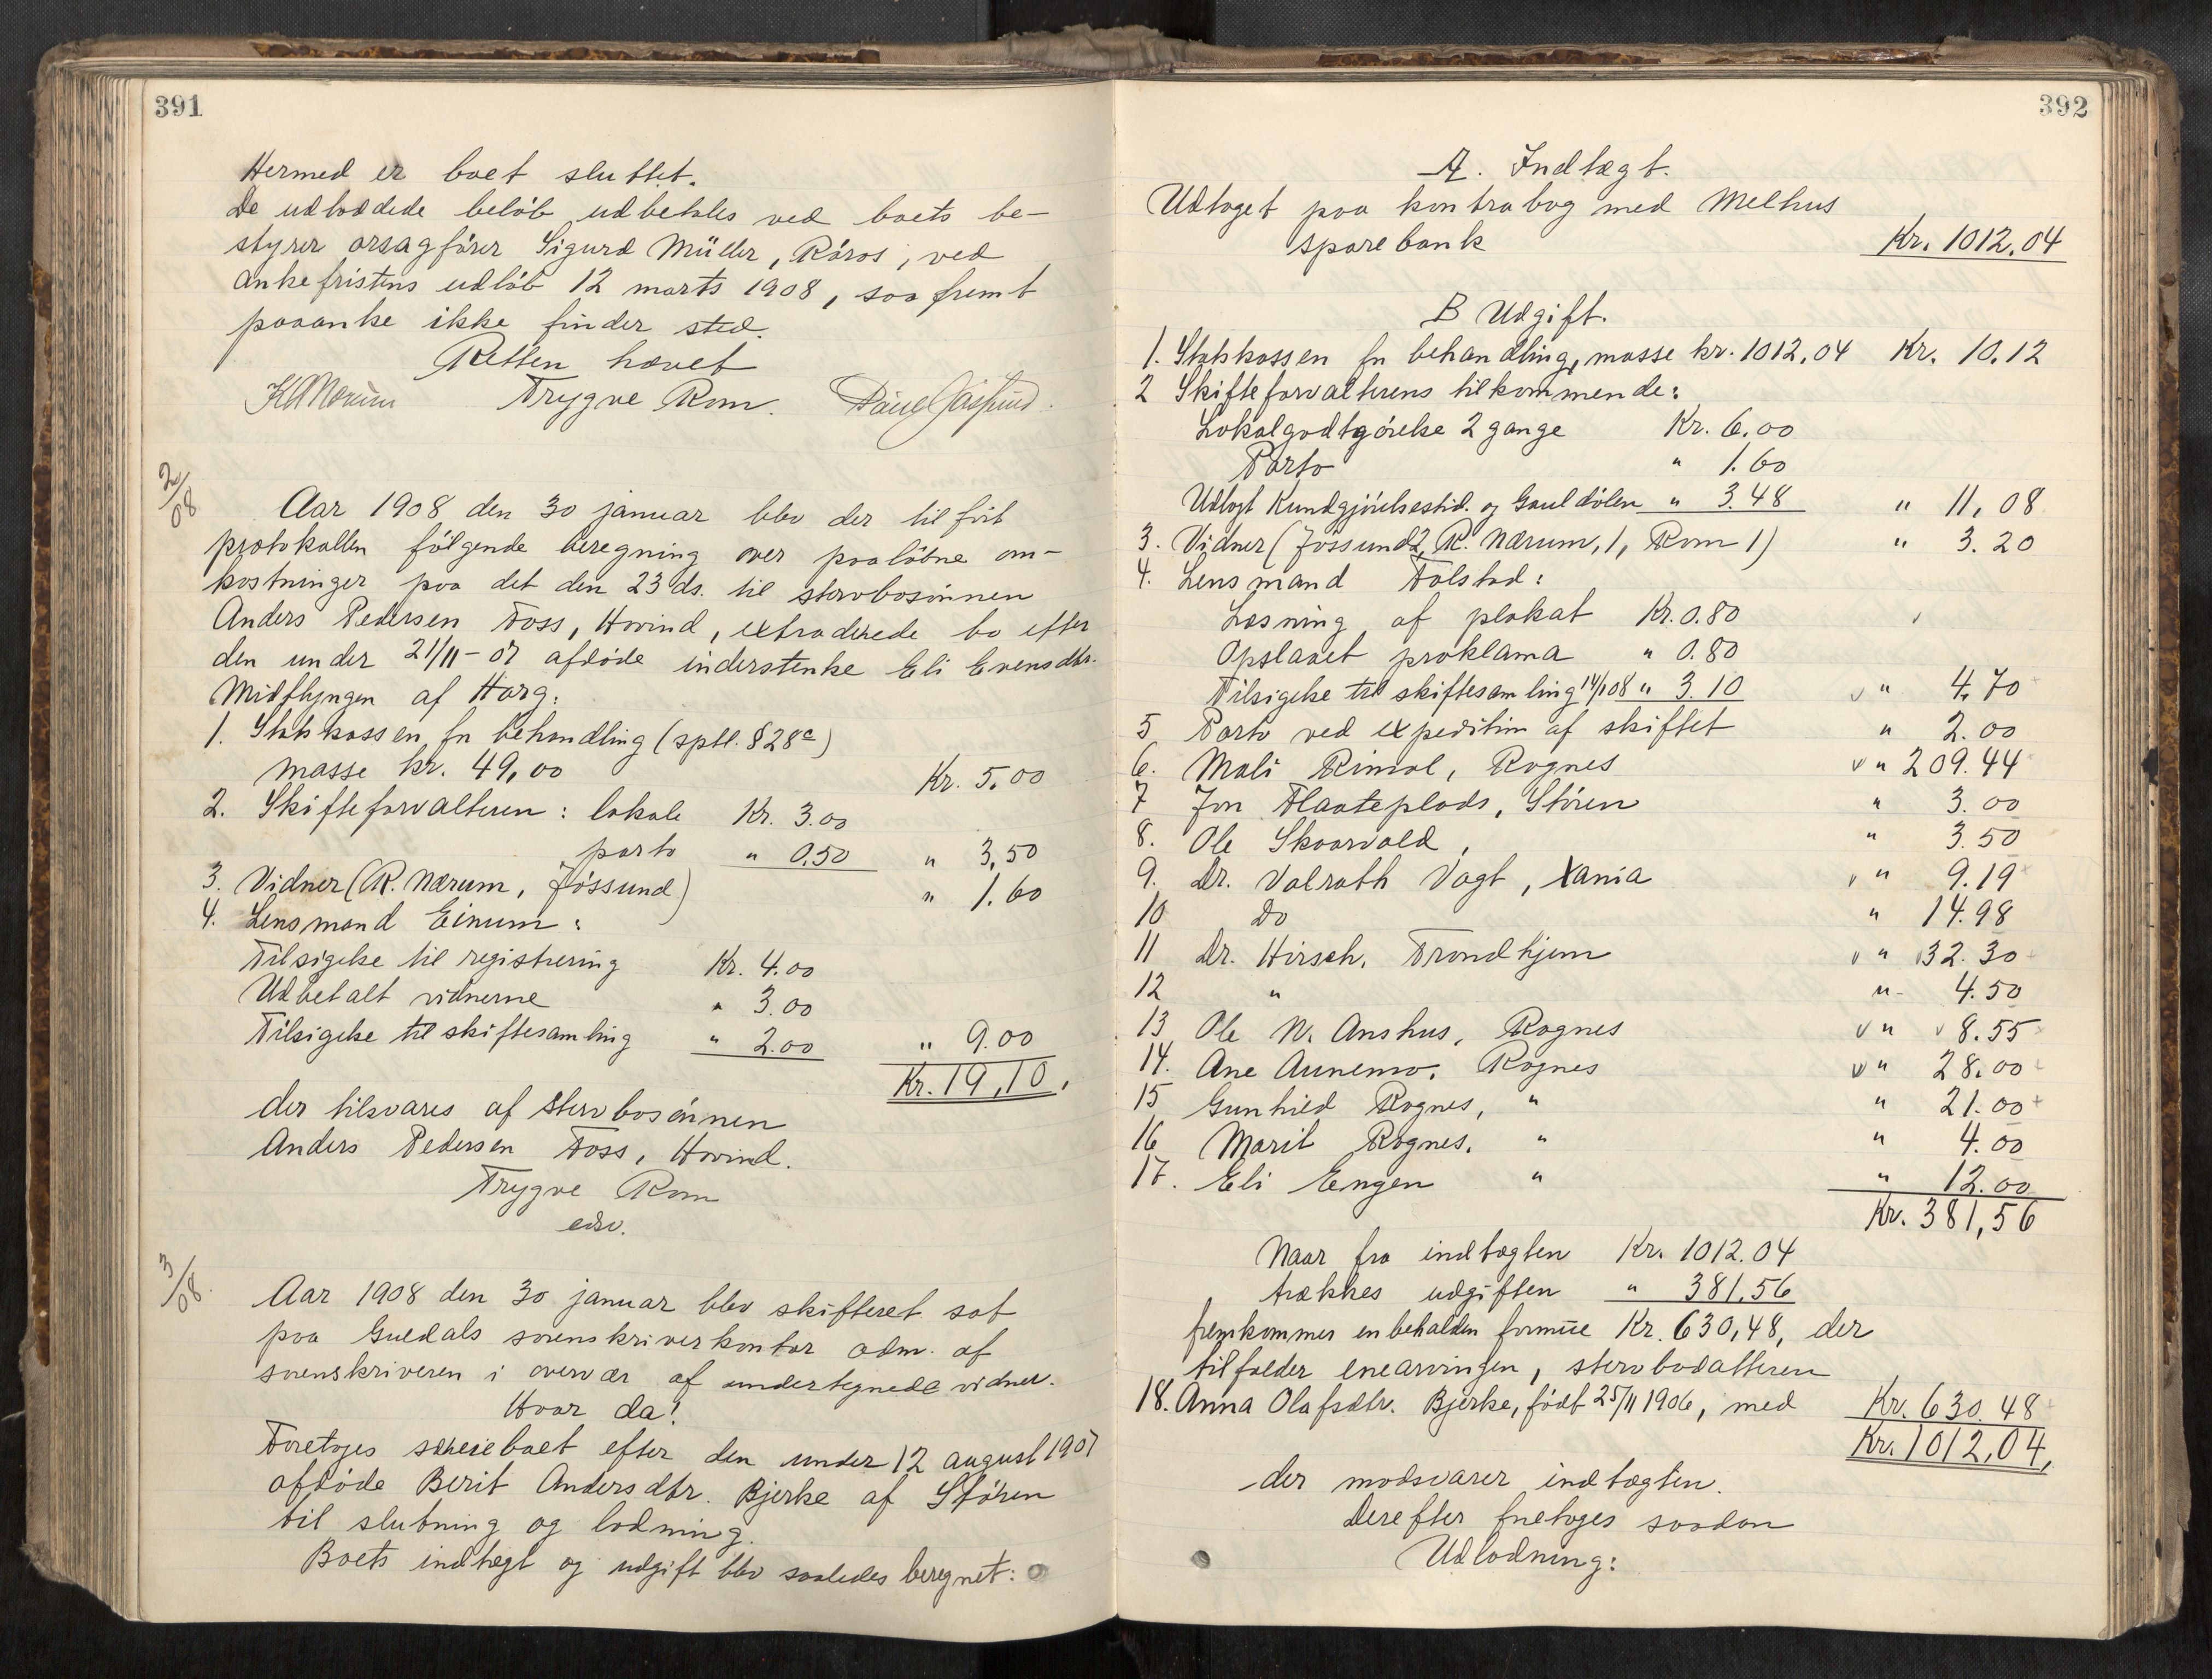 391
Hermed er boet sluttet.
De udloddede beløb udbetales ved boets be-
styrer orsagfører Sigurd Müller, Røros, ved
ankefristens udløb 12 marts 1908, saafremt
paaanke ikke finder sted.
Retten hævet
K. Nærum Trygve Rom. Daniel Jøssund.
2/08
Aar 1908 den 30 januar blev der tilført
protokollen følgende beregning over paaløbne om-
kostninger paa det den 23 ds. til stervbosønnen
Anders Pedersen Foss, Hovind, extraderede bo efter
den under 21/11-07 afdøde inderstenke Eli Evensdtr.
Midtlyngen af Horg:
1. Statskassen for behandling (sptl. § 28c)
masse kr. 49,00 Kr. 5.00
2. Skifteforvalteren: lokale Kr. 3.00
porto " 0.50 " 3,50
3. Vidner (R. Nærum, Jøssund) " 1.60
4. Lensmand Einum:
Tilsigelse til registrering Kr. 4.00
Udbetalt vidnerne " 3.00
Tilsigelse til skiftesamling " 2.00 " 9.00
Kr. 19,10.
der tilsvares af stervbosønnen
Anders Pedersen Foss, Hovind.
Trygve Rom
edsv.
3/08.
Aar 1908 den 30 januar blev skifteret sat
paa Guldals sorenskriverkontor adm. af
sorenskriveren i overvær af undertegnede vidner.
Hvor da!
Foretoges boet efter den under 12 august 1907
afdøde Berit Andersdtr. Bjerke af Støren
til slutning og lodning.
Boets indtægt og udgift blev saaledes beregnet:
392
A. Indtægt.
Udtaget paa kontrabog med Melhus
sparebank Kr. 1012.04
B Udgift.
1. Statskassen for behandling, masse kr. 1012,04 Kr. 10.12
2 Skifteforvalterens tilkommende:
Lokalgodtgørelse 2 gange Kr. 6.00
Porto " 1.60
Udlagt Kundgjørelsestid. og Gauldølen " 3.48 " 11,08
3. Vidner (Jøssund 2, R. Nærum, 1, Rom 1) " 3.20
4. Lensmand Folstad:
Læsning af plakat Kr. 0.80
Opslaaet proklama " 0.80
Tilsigelse til skiftesamling 14/1 08 " 3.10 " 4.70
5 Porto ved expedition af skiftet " 2.00
6. Mali Rimol, Rognes " 209.44
7 Jon Flaateplads, Støren " 3.00
8. Ole Skaarvold, " 3.50
9. Dr. Valrath Vogt, Xania " 9.19
10 Do " 14.98
11 Dr. Hirsch, Trondhjem " 32.30
12 " " 4.50
13 Ole N. Anshus, Rognes " 8.55
14. Ane Aunemo, Rognes " 28.00
15 Gunhild Rognes, " " 21.00
16 Marit Rognes, " " 4.00
17. Eli Engen " " 12.00
Kr. 381,56
Naar fra indtægten Kr. 1012.04
trækkes udgiften " 381.56
fremkommer en beholden formue Kr. 630,48, der
tilfalder enearvingen, stervbodatteren
18. Anna Olafsdtr. Bjerke, født 25/11 1906, med Kr. 630.48
Kr. 1012,04,
der modsvarer indtægten.
Derefter foretoges saadan
Udlodning: